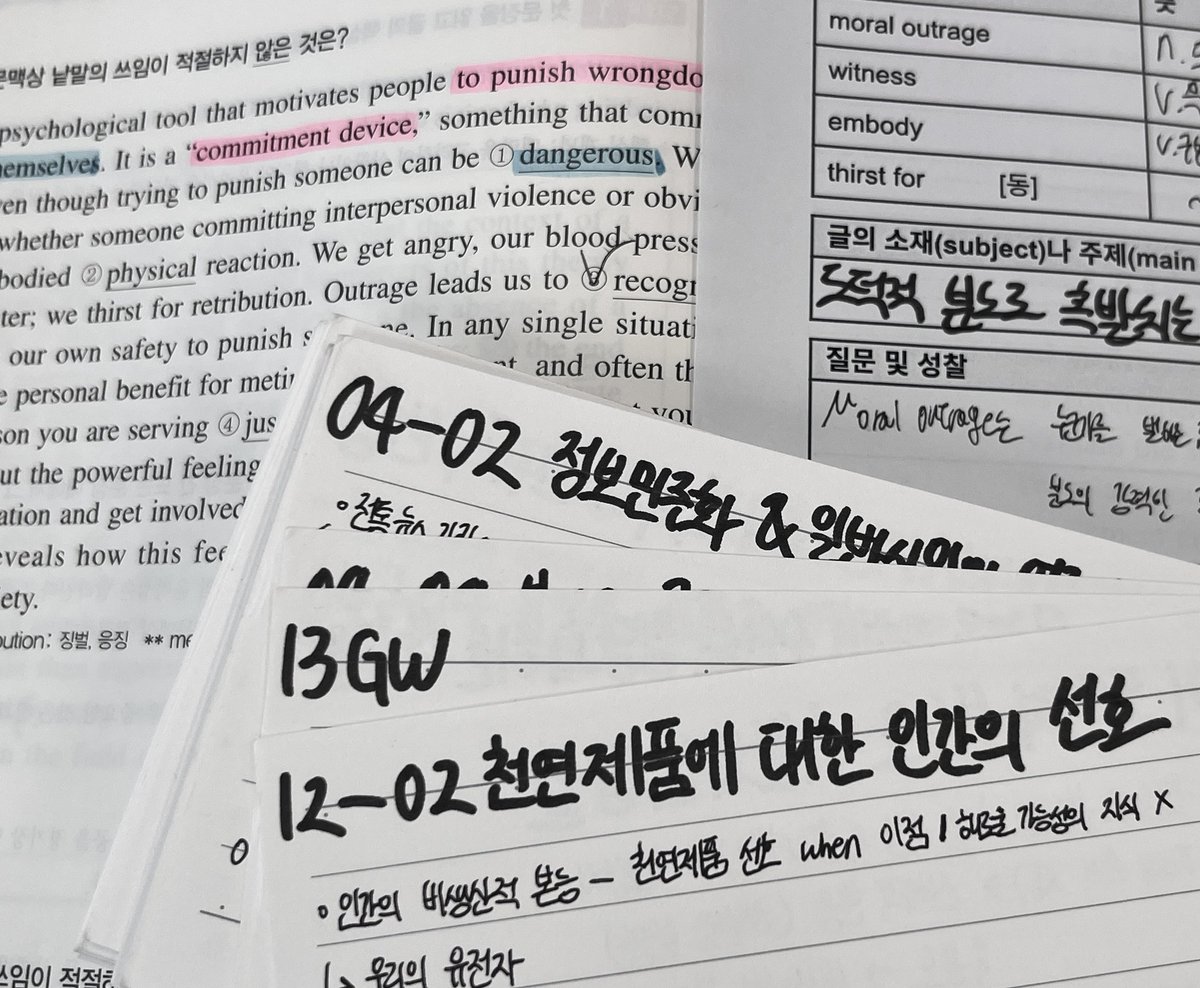 문맥상 낱말의 쓰임이 적절하지 않은 것은?
psychological tool that motivates people to punish
emselves. It is a “commitment device,” something that
en though trying to punish someone can be ① dangerous.
whether someone committing interpersonal violence or
bodied ② physical reaction. We get angry, our blood
ter; we thirst for retribution. Outrage leads us to ③
our own safety to punish In any single
e personal benefit for and often
son you are serving ④
ut the powerful feeling
ation and get involved
eveals how this
ety.
bution: 징벌, 응징 **
쓰임이
moral outrage
witness
embody
thirst for [동]
글의 소재(subject)나 주제(main
도덕적 분노로 촉발되는
질문 및 성찰
Moral outrage는
분노의 강력한
04-02 정보민주화 &
13GW
12-02 천연제품에 대한 인간의 선호
인간의 비생산적 본능 – 천연제품 선호 when 이점 / 해로움 가능성의 지식 X
↳ 우리의 유전자